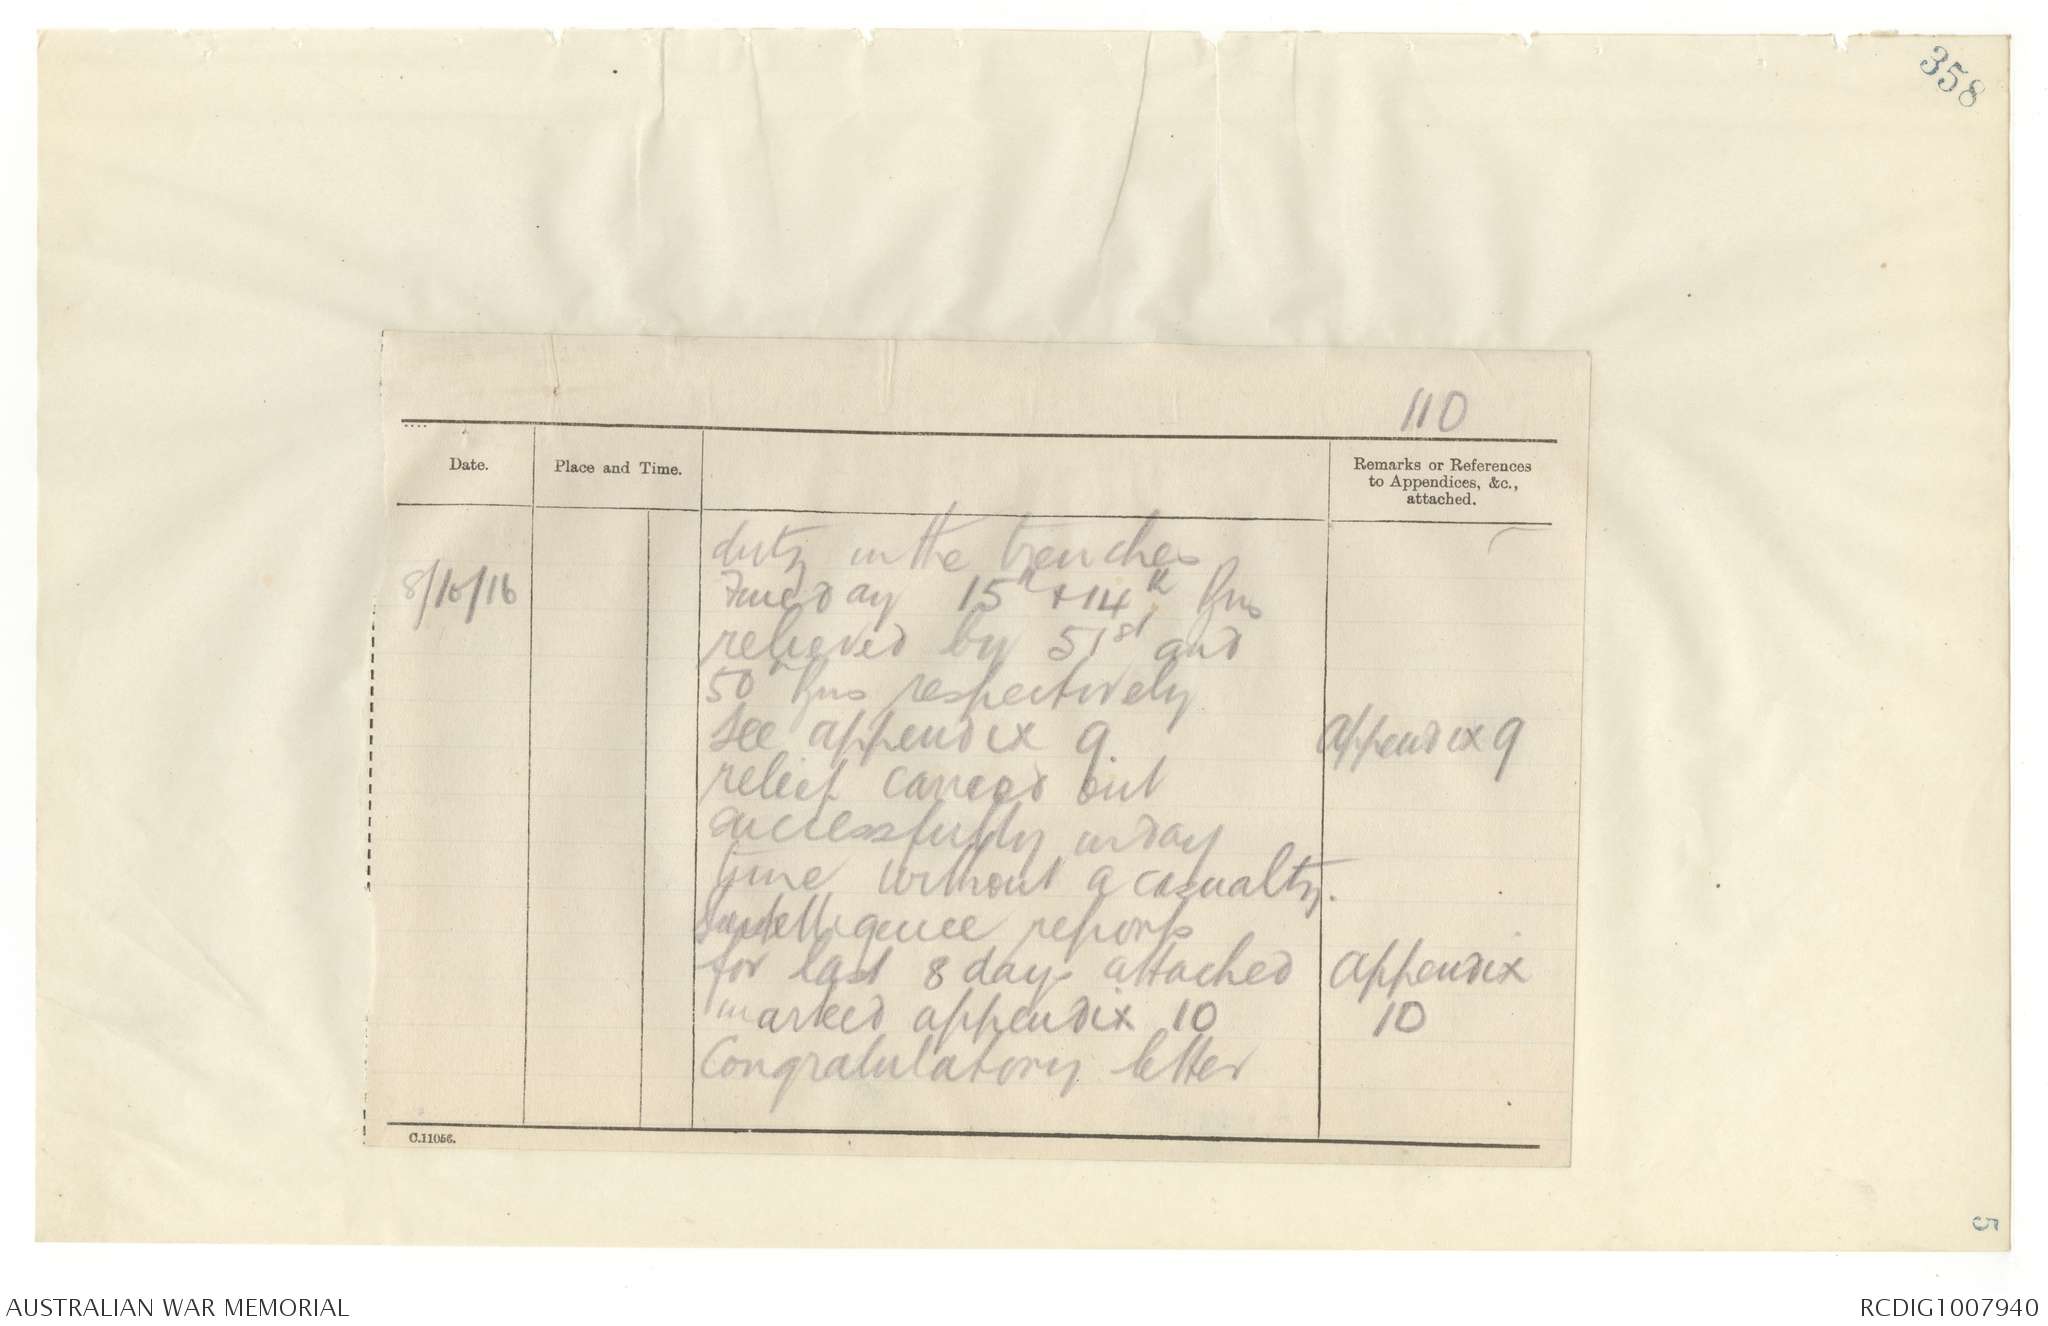 358
110
Date.
Place and Time.
Remarks or References
to Appendices, &c.,
attached.
duty in the trenches
8/10/16
15th + 14th Bns
relieved by 51st and
50th Bns respectively
See appendix 9.
appendix 9
relief carried out
successfully in day
time without a casualty.
Intelligence reports
for last 8 days attached
appendix
marked appendix 10
10
Congratulatory letter
C.11056.
AUSTRALIAN WAR MEMORIAL
RCDIG1007940